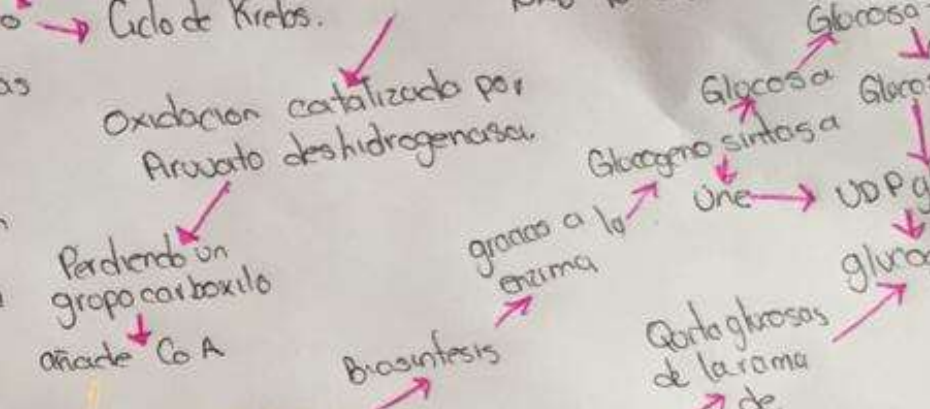 Ciclo de Krebs.
Oxidacion catalizada por
Piruvato deshidrogenasa.
Perdiendo un
grupo carboxilo
añade CoA
Biosintesis
gracias a la
enzima
Glucogeno sintasa
Glucosa
Glucosa
Une
UDP g
Quita glucosas
de la rama
de